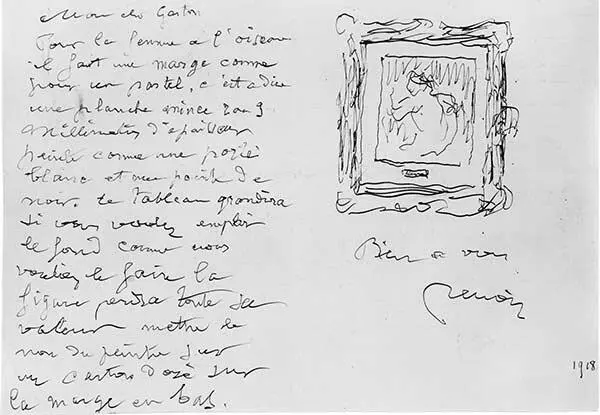 Mon cher Gaston
Pour la femme a l'oiseau
il faut une marge comme
pour un pastel, c'est a dire
une planche mince 2 ou 3
millimetres d'epaisseur
peinte comme une
blanc et une pointe de
noir. le tableau grandira
Si vous voulez emplir
le fond comme vous
voulez le faire la
figure perdra toute sa
valeur mettre le
nom du peintre sur
un carton doré sur
la marge en bas.
Bien a vous
Renoir
1918